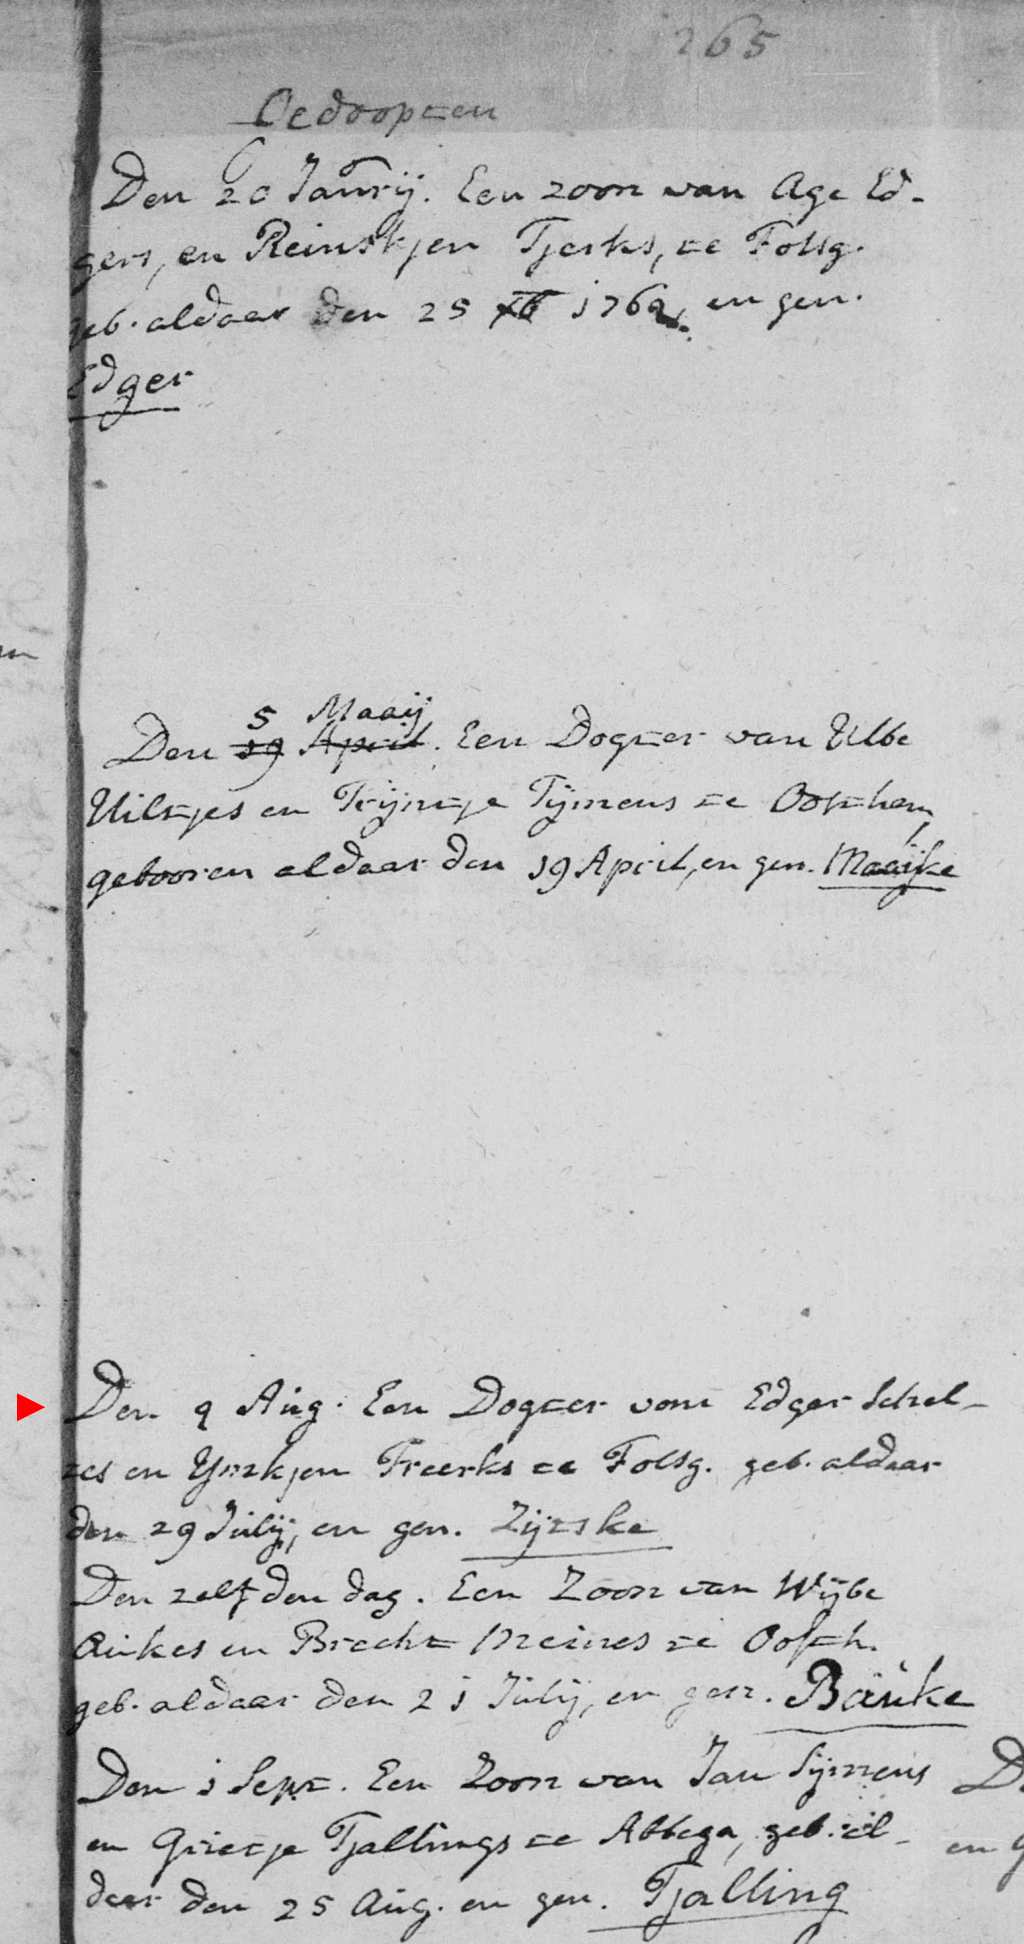 265
Gedoopten
Den 20 Janrij. Een zoon van Age Ed-
gers, en Reinskjen Tjerks, te Folsg.
geb. aldaar den 25 Xb 1762, en gen.
Edger
5 Maaij
Den 19 April. Een Dogter van Ulbe
Uiltjes en Trijntje Tijmens te Oosthem,
gebooren aldaar den 19 April, en gen. Maaijke
Den 9 Aug. Een Dogter van Edger Schel-
tes en Ymkjen Freerks te Folsg. geb. aldaar
den 29 Julij, en gen. Zijtske
Den zelfden dag. Een Zoon van Wijbe
Aukes en Brecht Meines te Oosth.
geb. aldaar den 21 Julij, en gen. Bauke
Den 1 Sept. Een Zoon van Jan Sijmens
en Grietje Tjallings te Abbega, geb. al-
daar den 25 Aug. en gen. Tjalling